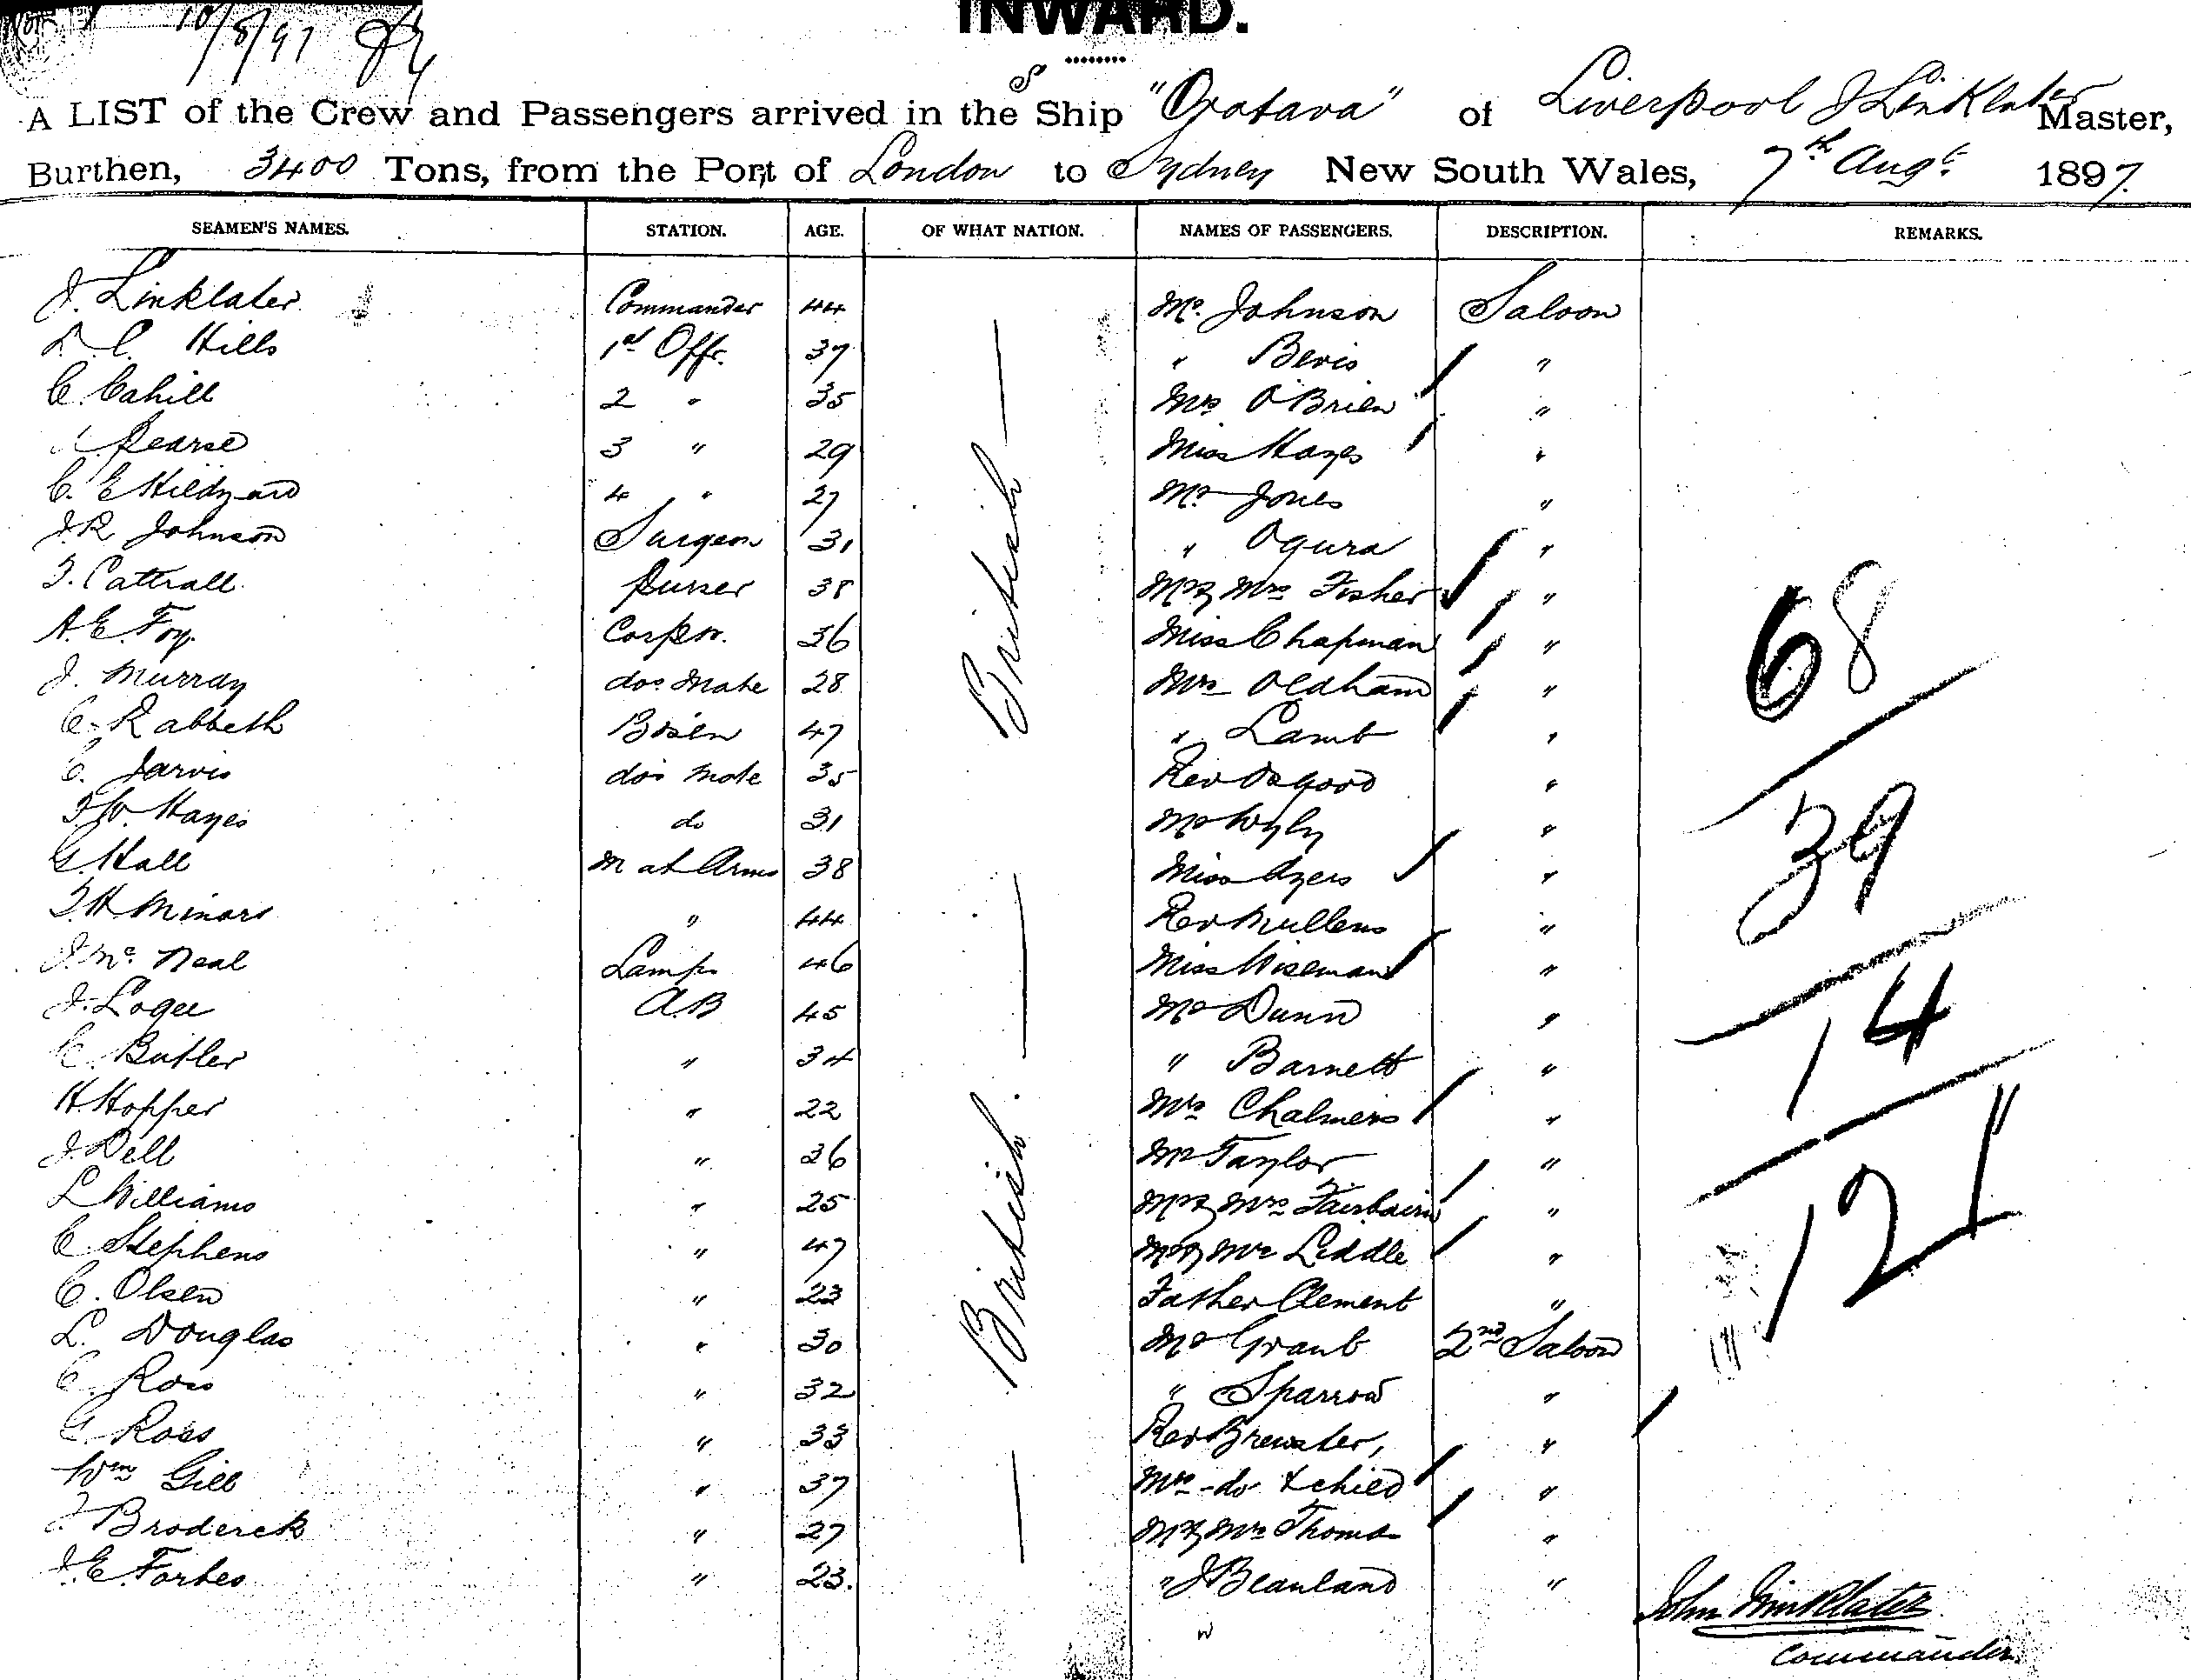 10/8/97
INWARD.
A LIST of the Crew and Passengers arrived in the S Ship "Orotava" of Liverpool J Linklater Master,
Burthen, 3400 Tons, from the Port of London to Sydney New South Wales, 7th Augt 1897.
SEAMEN'S NAMES. STATION. AGE. OF WHAT NATION. NAMES OF PASSENGERS. DESCRIPTION. REMARKS.
J. Linklater Commander 44 British Mr. Johnson Saloon
Hills 1st Offr. 37 " Bevis "
C. Cahill 2 " 35 Mrs O'Brien "
Pearse 3 " 29 Miss Hayes "
C. E Hildyard 4 " 27 Mr Jones "
J. R Johnson Surgeon 31 " Ogura "
T. Cattrall Purser 38 Mr & Mrs Fisher "
A. E. Foy. Carpr. 36 Miss Chapman "
J. Murray dos mate 28 Mrs Oldham "
C. Rabbeth Bosen 47 " Lamb "
C. Jarvis dos mate 35 Rev Osgood "
Hayes do 31 Mr Wyly "
G. Hall M at Arms 38 Miss Ayers "
Minors " 44 Rev Mullens "
J. Mc Neal Lamps 46 Miss Wiseman "
J. Logee A.B 45 Mr Dunn "
C. Butler " 34 " Barnett "
H. Hopper " 22 British. Mrs Chalmers "
J. Dell " 36 Mr Taylor "
L Williams " 25 Mr & Mrs Fairbairn "
C Stephens " 47 Mr & Mrs Liddle "
C. Olsen " 23 Father Clement "
L. Douglas " 30 Mr Grant 2nd Saloon
C. Ross " 32 " Sparrow "
G. Ross " 33 Rev Brewster, "
Wm Gill " 37 Mrs -do- & child "
Broderick " 27 Mr & Mrs Thomas "
J. E. Forbes " 23. " J Beanland "
68
39
14
121
John Linklater
Commander.